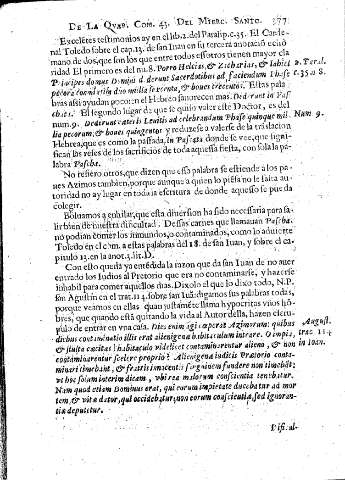 DE LA QVAR. Com. 43. DEL MIERC. SANTO. 377
Excelētes testimonios ay en el lib. 2. del Paralip. c. 35. El Carde-
nal Toledo sobre el cap. 13. de san Iuan en su tercera anotació echó
mano de dos, que son los que entre todos essotros tienen mayor cla
ridad El primero es del nu. 8. Porro Helcias, & Zacharias, & Iahiel 2. Paral.
Principes domus Domini dederunt Sacerdotibus ad faciendum Phase c. 35. n 8.
pecora duo millia sexcenta, & boues trecentos. Estas pala
bras assi ayudan pocoren el Hebreo fauorecen mas. Dederunt in Pas
chate. El segundo lugar de que se quiso valer este Doctor, es del
num. 9. Dederunt cæteris Leuitis ad celebrandum Phase quinque mil. Num 9.
lia pecorum, & boues quingentos y reduzese a valerse de la traslacion
Hebrea, que es como la passada, in Pascha donde se vee, que signi-
fican las reses de los sacrificios de toda aquessa fiesta, con sola la pala
labra Pascha.
No refiero otros, que dizen que essa palabra se estiende a los pa-
nes Azimos tambien, porque aunque a quien lo piēsa no le falta auto
ridad no ay lugar en toda la escritura de donde aquesso se pueda
colegir.
Boluamos a enhilar, que esta diuersion ha sido necessaria para sa-
lir bien de nuestra dificultad. Dessas carnes que llamauan Pascha.
no podian comer los inmundos, o contaminados, como lo aduierte
Toledo en el cōm. a estas palabras del 18. de san Iuan, y sobre el ca-
pitulo 13. en la anot. 4. lit. D.
Con esto queda ya entēdida la razon que da san Iuan de no auer
entrado los Iudios al Pretorio que era no contaminarse, y hazerse
inhabil para comer aquellos dias. Dixolo el que lo dixo todo, N. P.
san Agustin en el trat. 114. sobre san Iuā digamos sus palabras todas,
porque veamos en ellas quan justamēte llama hypocritas vnos hō-
bres, que quando está quitando la vida al Autor della, hazen escru-
pulo de entrar en vna casa. Dies enim agi cœperat Azimorum: quibus August.
diebus contaminatio illis erat alienigenæ habitaculum intrare. O impia, trac. 114
& stulta cæcitas! habitaculo videlicet contaminarentur alieno, & non in Ioan.
contaminarentur scelere proprio? Alienigenæ iudicis Prætorio conta-
minari timebant, & fratris innocentis sanguinem fundere non timebāt:
vt hoc solum interim dicam, vbi rea malorum conscientia tenebatur.
Nam quod etiam Dominus erat, qui eorum impietate ducebatur ad mor
tem, & vitæ dator, qui occidebatur, non eorum conscientiæ, sed ignoran-
tiæ deputetur.
Difi. al-